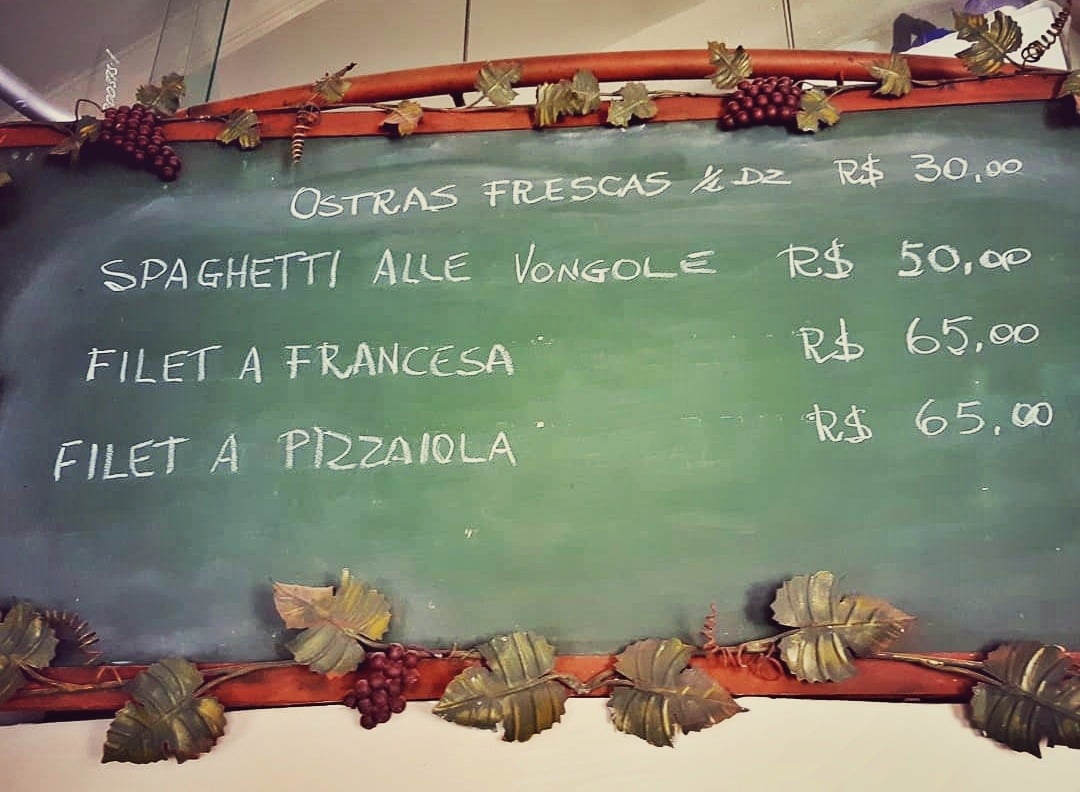 OSTRAS FRESCAS ½ DZ R$ 30,00
SPAGHETTI ALLE VONGOLE R$ 50,00
FILET A FRANCESA R$ 65,00
FILET A PIZZAIOLA R$ 65,00